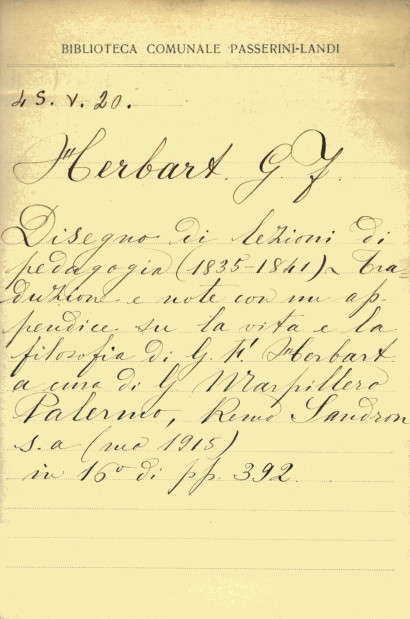 BIBLIOTECA COMUNALE PASSERINI-LANDI
4 S. V. 20.
Herbart. G. F.
Disegno di lezioni di
pedagogia (1835-1841) Tra
duzione e note con un ap-
pendice su la vita e la
filosofia di G. F. Herbart
a cura di G Marpillero
Palermo, Remo Sandron
s. a (ma 1915)
in 16º di pp. 392.